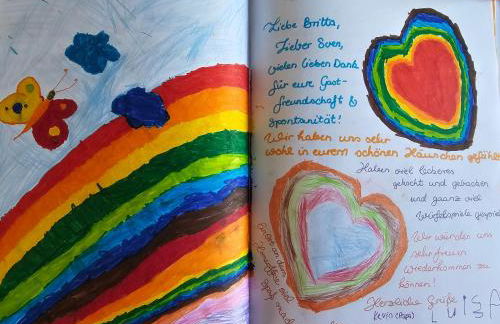 Liebe Britta,
Lieber Sven,
vielen lieben Dank
für eure Gast-
freundschaft &
Spontanität!
Wir haben uns sehr
wohl in eurem schönen Häuschen gefühlt
Haben viel leckeres
gekocht und gebacken
und gaanz viel
Würfelspiele gespielt
Wir würden uns
sehr freuen
wiederkommen zu
können!
Herzliche Grüße
Kevin (Papa)